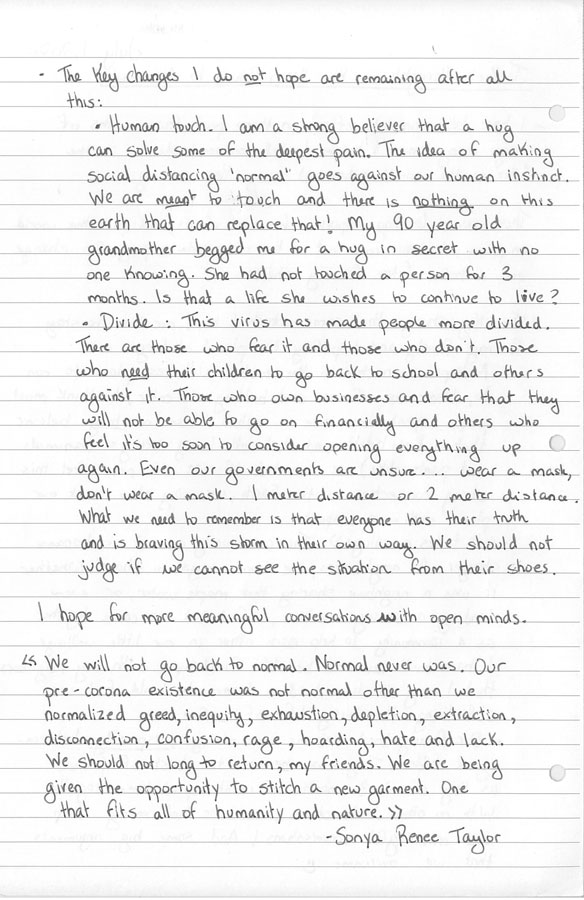 - The Key changes I do not hope are remaining after all
this:
• Human touch. I am a strong believer that a hug
can solve some of the deepest pain. The idea of making
social distancing 'normal" goes against our human instinct.
We are meant to touch and there is nothing on this
earth that can replace that! My 90 year old
grandmother begged me for a hug in secret with no
one knowing. She had not touched a person for 3
months. Is that a life she wishes to continue to live?
• Divide : This virus has made people more divided.
There are those who fear it and those who don't. Those
who need their children to go back to school and others
against it. Those who own businesses and fear that they
will not be able to go on financially and others who
feel it's too soon to consider opening everything up
again. Even our governments are unsure... wear a mask,
don't wear a mask. 1 meter distance or 2 meter distance.
What we need to remember is that everyone has their truth
and is braving this storm in their own way. We should not
judge if we cannot see the situation from their shoes.
I hope for more meaningful conversations with open minds.
« We will not go back to normal. Normal never was. Our
pre-corona existence was not normal other than we
normalized greed, inequity, exhaustion, depletion, extraction,
disconnection, confusion, rage, hoarding, hate and lack.
We should not long to return, my friends. We are being
given the opportunity to stitch a new garment. One
that fits all of humanity and nature. »
-Sonya Renee Taylor